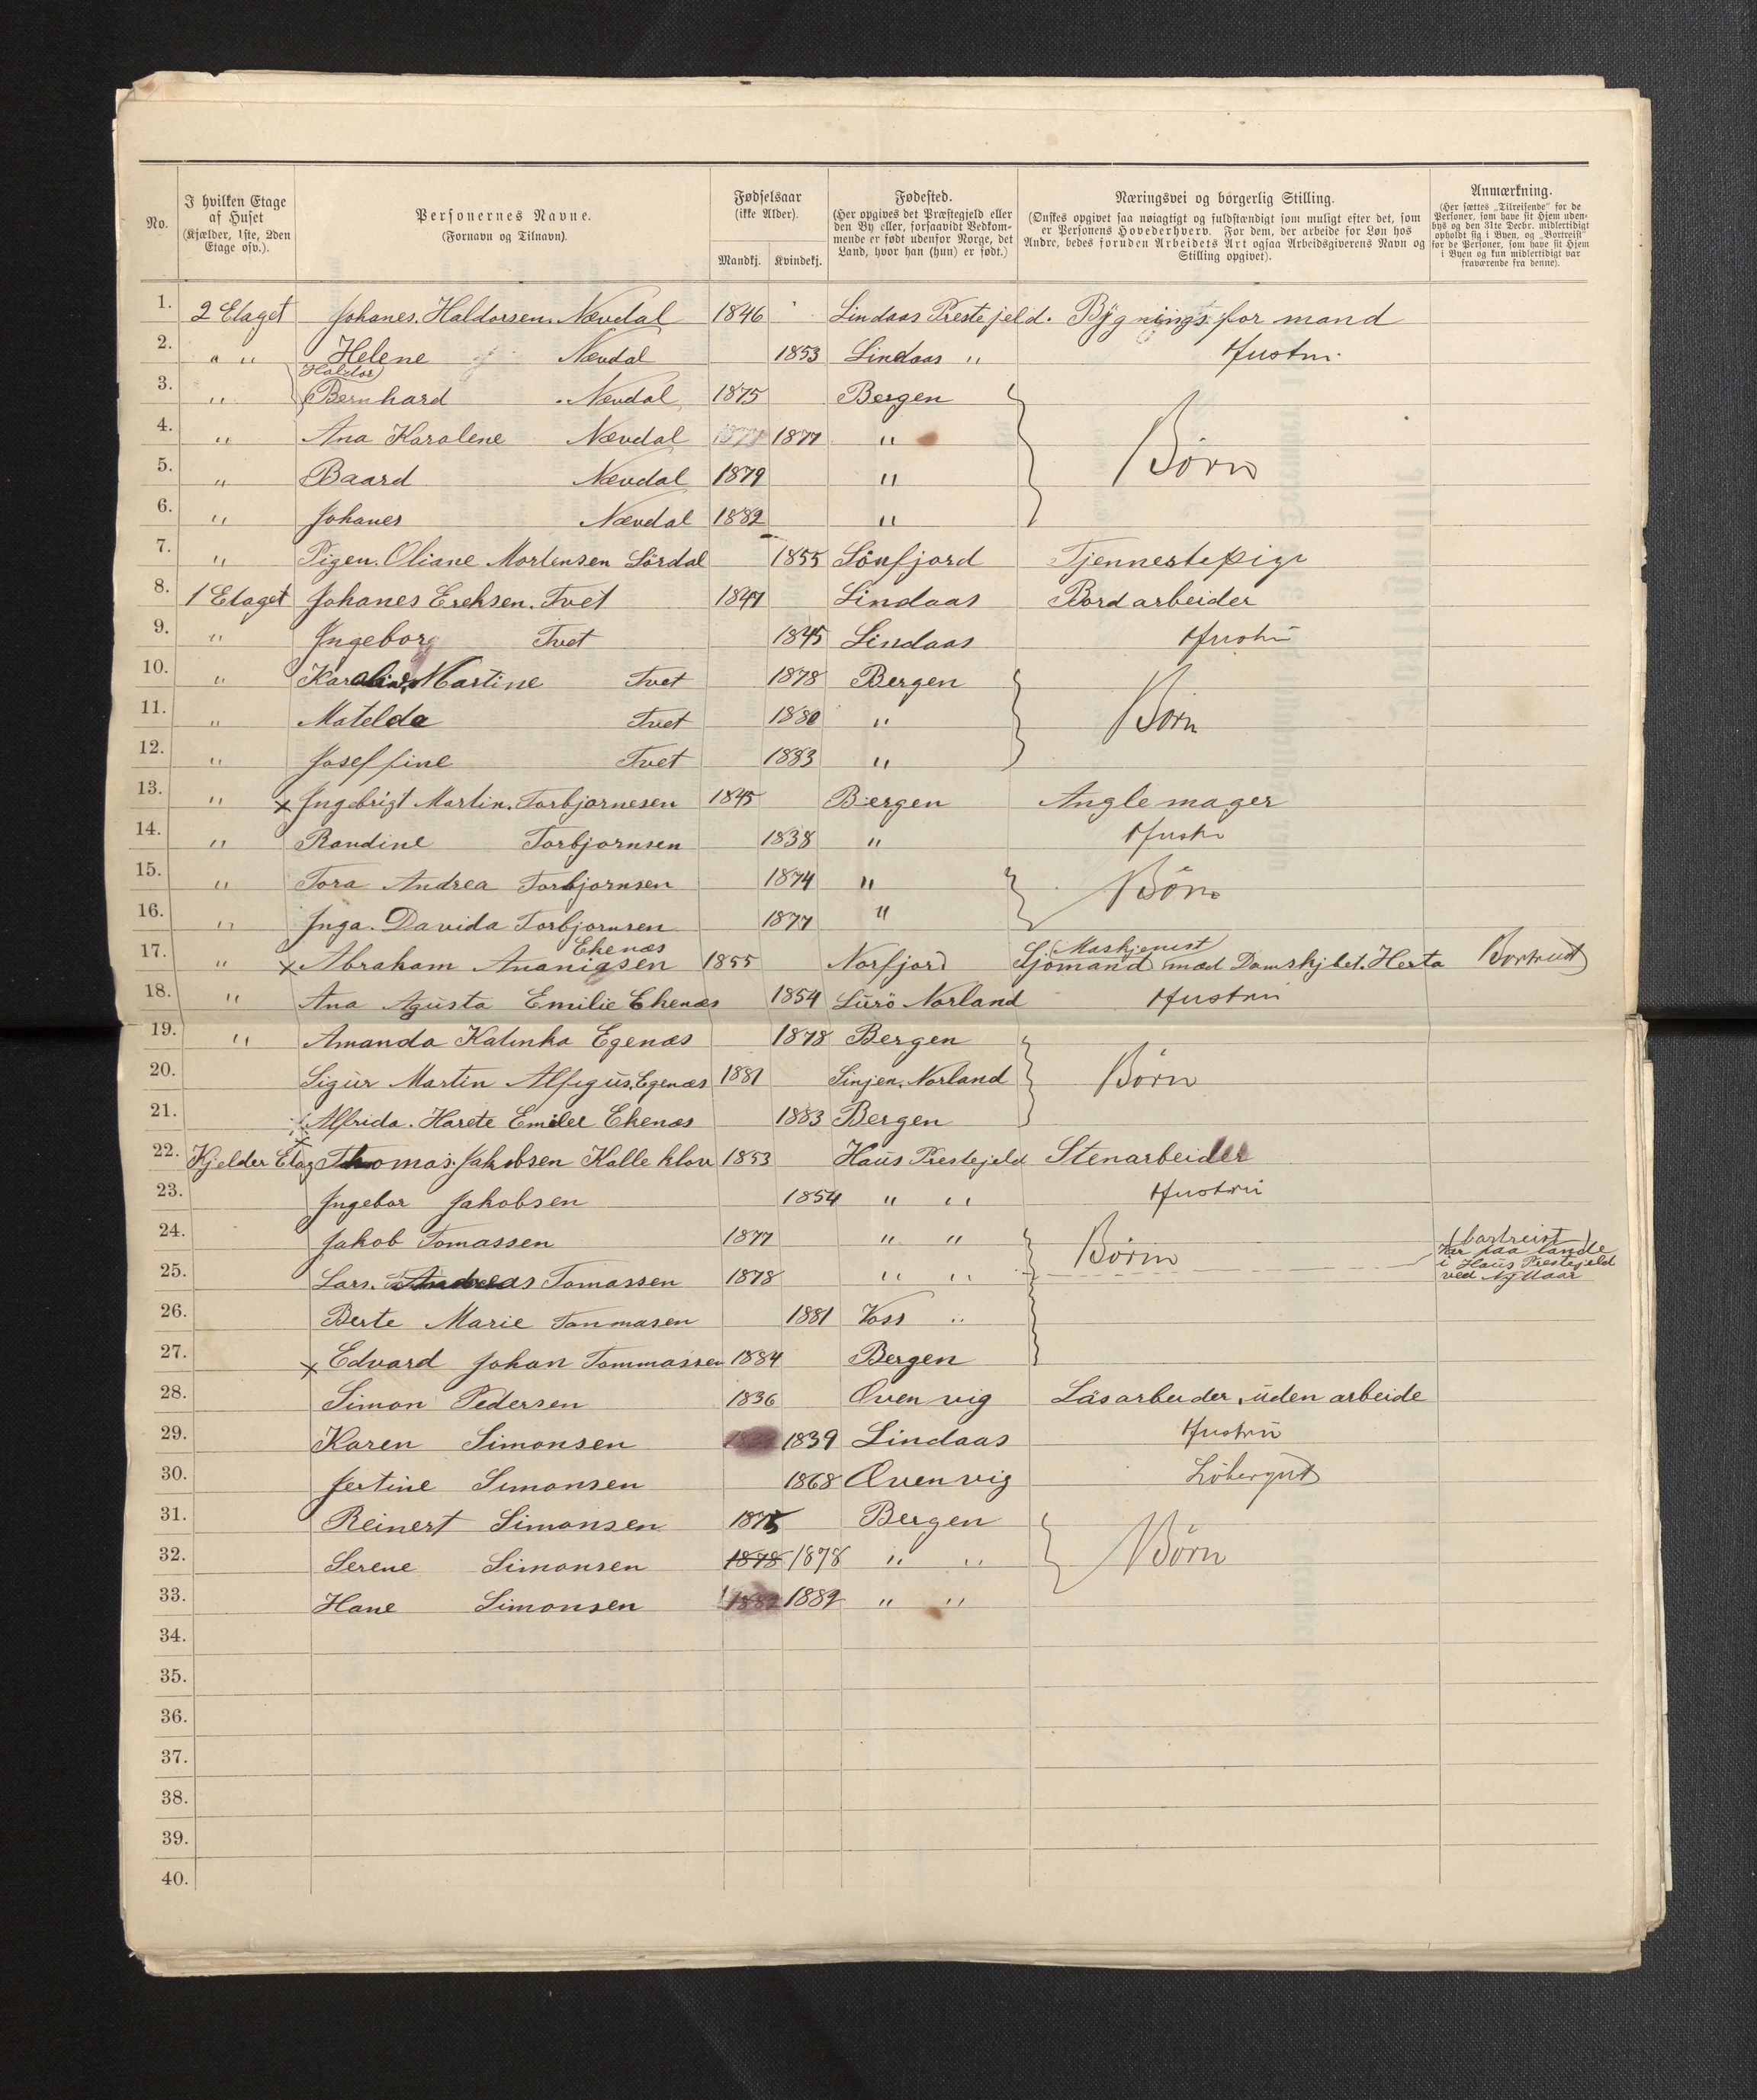 No.
I hvilken Etage af Huset (Kjælder, 1ste, 2den Etage osv.).
Personernes Navne. (Fornavn og Tilnavn).
Fødselsaar (ikke Alder).
Mandkj. Kvindekj.
Fødested. (Her opgives det Præstegjeld eller den By eller, forsaavidt Vedkommende er født udenfor Norge, det Land, hvor han (hun) er født.)
Næringsvei og borgerlig Stilling. (Ønskes opgivet saa nøiagtigt og fuldstændigt som muligt efter det, som er Personens Hovederhverv. For dem, der arbeide for Løn hos Andre, bedes foruden Arbeidets Art ogsaa Arbeidsgiverens Navn og Stilling opgivet).
Anmærkning. (Her sættes „Tilreisende" for de Personer, som have sit Hjem udenbys og den 31te Decbr. midlertidigt opholdt sig i Byen, og „Bortreist" for de Personer, som have sit Hjem i Byen og kun midlertidigt var fraværende fra denne).
1. 2 Etaget Johanes. Haldorsen. Nævdal 1846 Lindaas Prestejeld. Bygnings for mand
2. " " Helene Nævdal 1853 Lindaas " Hustru
3. " (Haldor) Bernhard Nævdal 1875 Bergen
4. " Ana Karalene Nævdal 1877 1877 " Børn
5. " Baard Nævdal 1879 "
6. " Johanes Nævdal 1882 "
7. " Pigen. Oliane Mortensen Sördal 1855 Sönfjord Tjennestepige
8. 1 Etaget Johanes Ereksen. Tvet 1847 Lindaas Bord arbeider
9. " Ingeborg Tvet 1845 Lindaas Hustru
10. " Karoline Martine Tvet 1878 Bergen
11. " Matelde Tvet 1880 " Børn
12. " Joseffine Tvet 1883 "
13. " x Ingebrigt Martin. Torbjornesen 1845 Bergen Angle mager
14. " Randine Torbjornsen 1838 " Hustr
15. " Tora Andrea Torbjornsen 1874 " Børn
16. " Inga. Davida Torbjornsen 1877 "
17. " x Abraham Ananiasen Ekenæs 1855 Norfjord Sjömand (Maskjenist) mæd Damskjbet. Herta Bortreist
18. " Ana Agusta Emilie Ekenæs 1854 Lurö Norland Hustru
19. " Amanda Katinka Egenæs 1878 Bergen
20. Sigur Martin Alfegus. Egenæs 1881 Sinjen. Norland Børn
21. Alfrida. Harete Emilee Ekenæs 1883 Bergen
22. Kjelder Etag Thomas. Jakobsen Kalleklov 1853 Haus Prestejeld Stenarbeider
23. Ingebor Jakobsen 1854 " " Hustru
24. Jakob Tomassen 1877 " " Børn (bortreist)
25. Lars. Andreas Tomassen 1878 " " Her paa lande i Haus Prestejeld ved Nyttaar
26. Berte Marie Tommasen 1881 Voss "
27. x Edvard Johan Tommassen 1884 Bergen
28. Simon Pedersen 1836 Qvenvig Läsarbeider, uden arbeide
29. Karen Simonsen 1839 Lindaas Hustru
30. Jertine Simonsen 1868 Qvenvig
31. Reinert Simonsen 1875 Bergen
32. Serene Simonsen 1878 1878 " " Børn
33. Hane Simonsen 1882 1882 " "
34.
35.
36.
37.
38.
39.
40.